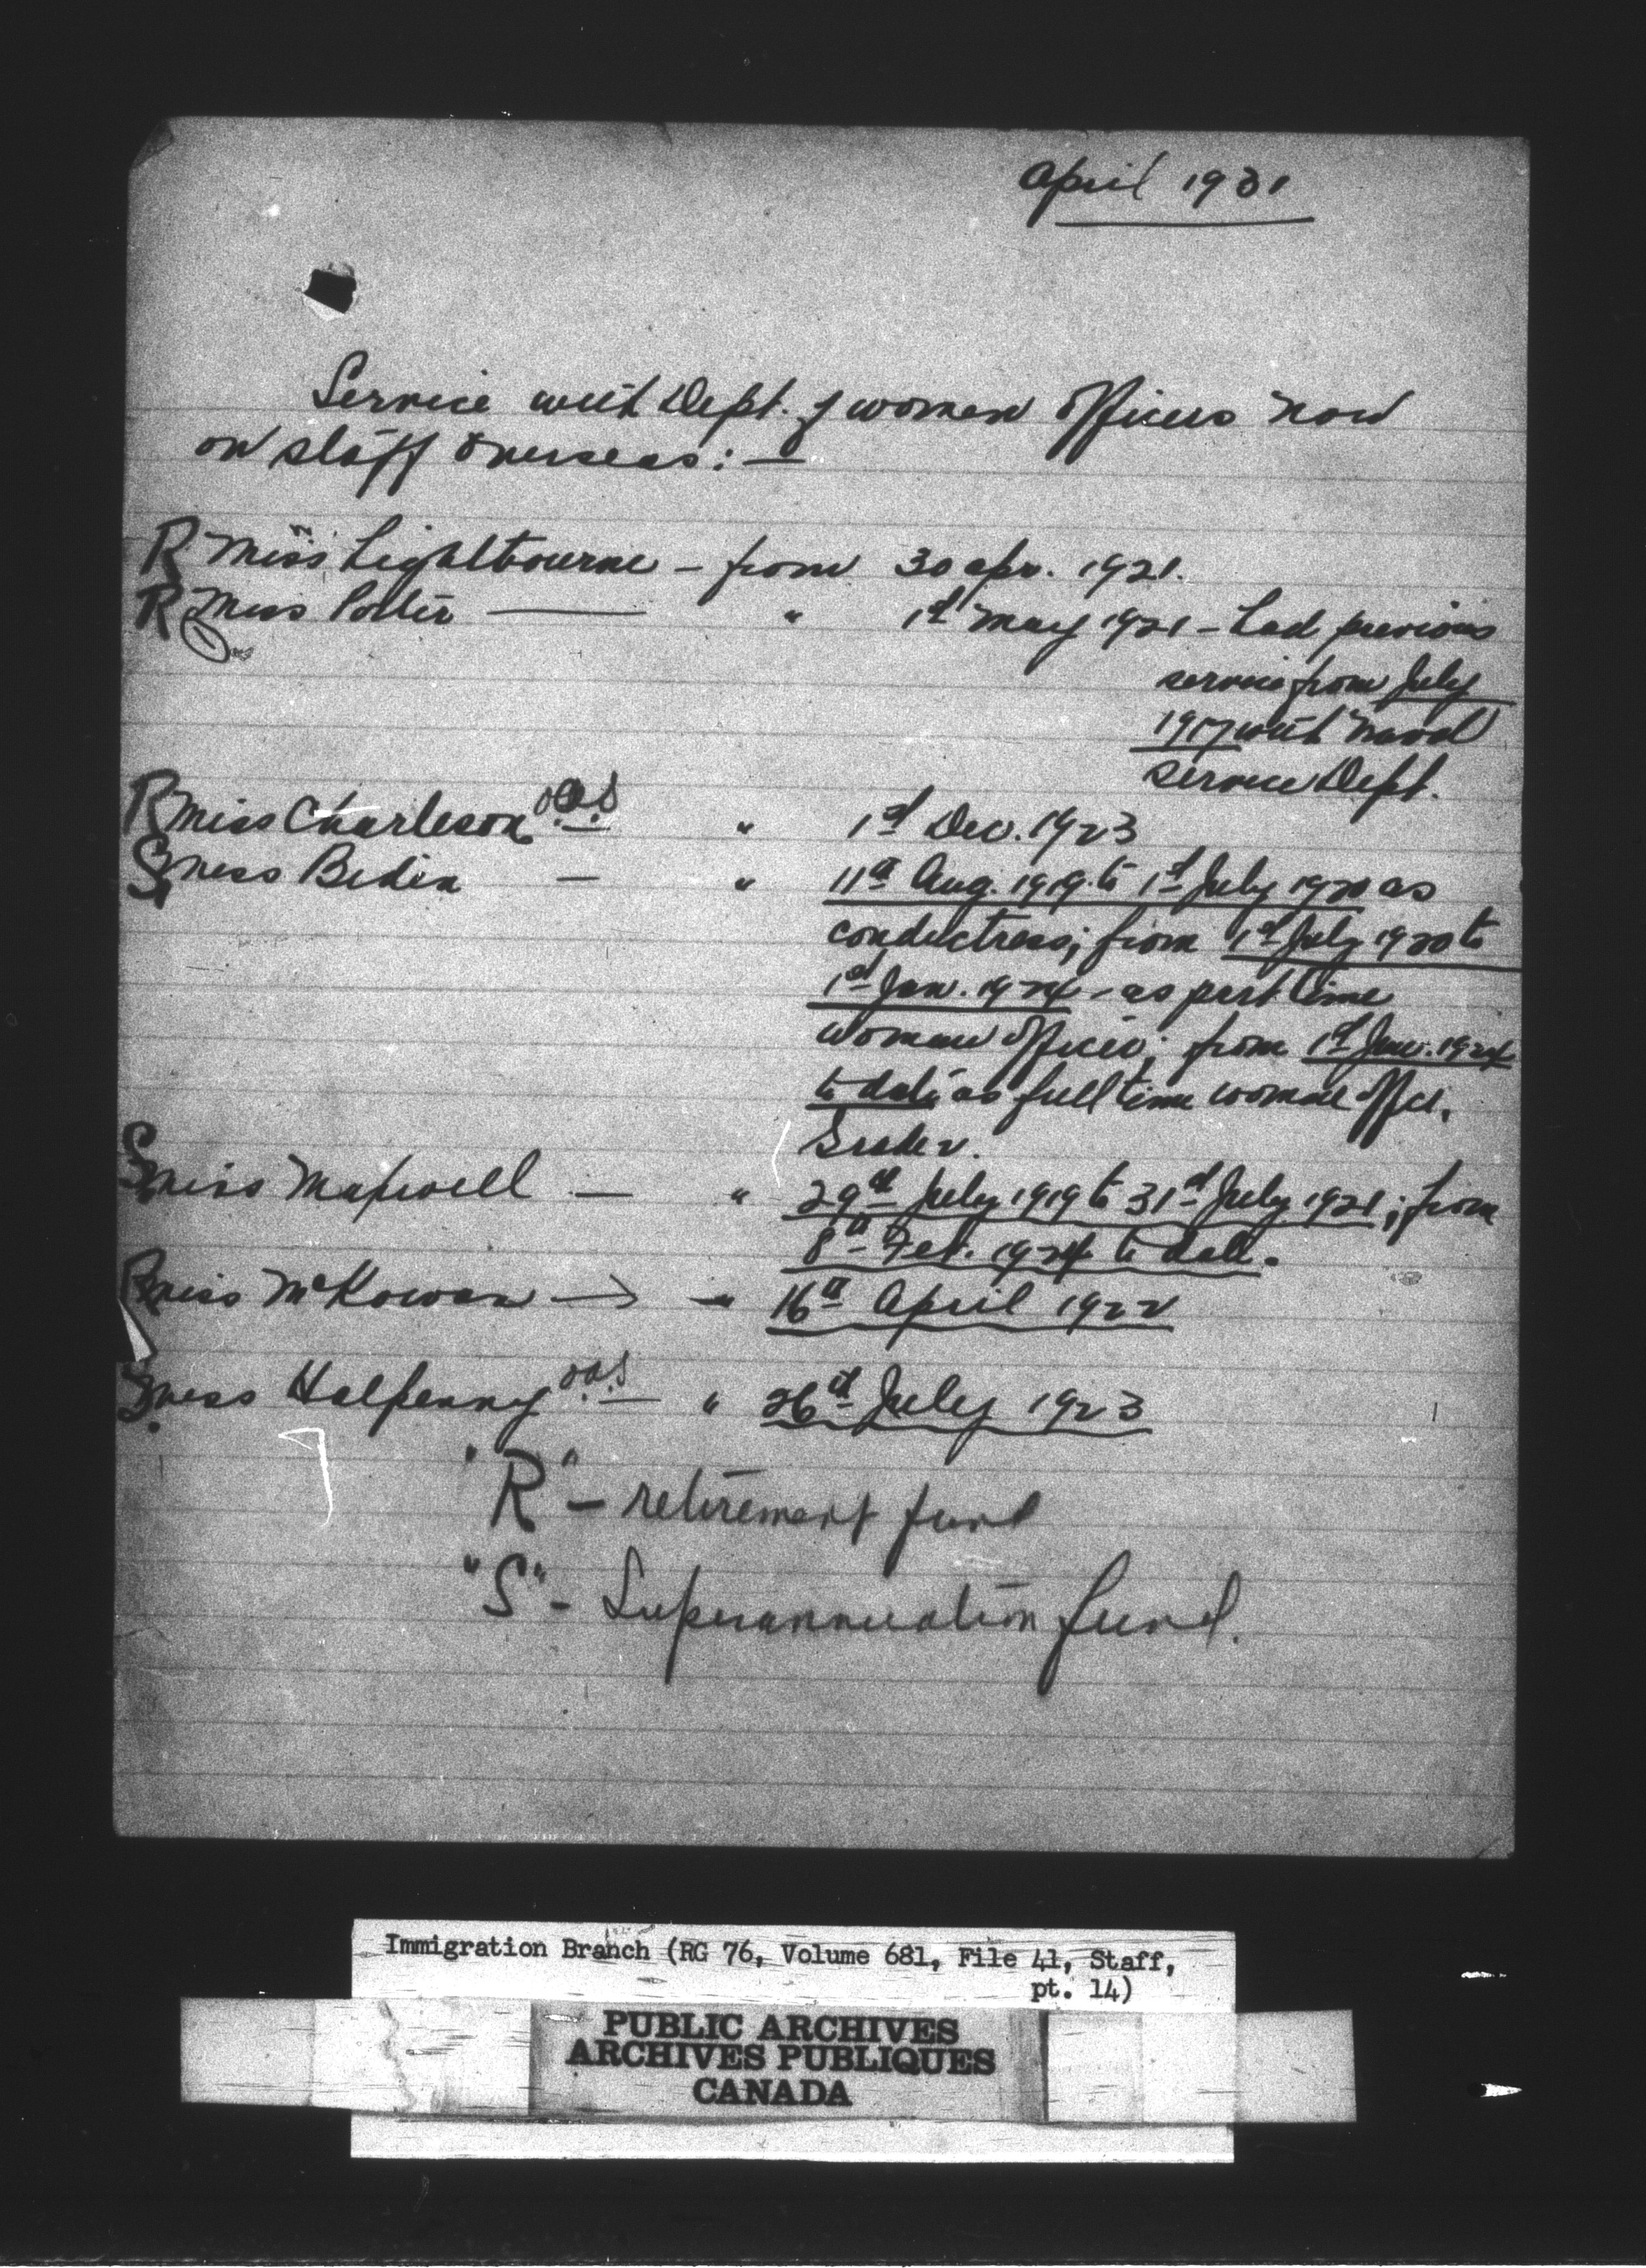 April 1931
Service with Dept. of women officers now
on staff overseas: —
R Miss Lightbourne — from 30 Apr. 1921.
R Miss Potter — " 1st May 1921 — had previous
service from July
1917 with Naval
Service Dept.
R Miss Charleson O.A.S. — " 1st Dec. 1923
S Miss Bedin — " 11th Aug. 1919 to 1st July 1920 as
conductress; from 1st July 1920 to
1st Jan. 1924 — as part time
woman officer; from 1st Jan. 1924
to date as full time woman offcr.
S Miss Maxwell — " 29th July 1919 to 31st July 1921; from
8th Feb. 1924 to date.
R Miss McKowan — " 16th April 1922
S Miss Halpenny O.A.S. — " 26th July 1923
"R" — retirement fund
"S" — Superannuation fund.
Immigration Branch (RG 76, Volume 681, File 41, Staff,
pt. 14)
PUBLIC ARCHIVES
ARCHIVES PUBLIQUES
CANADA